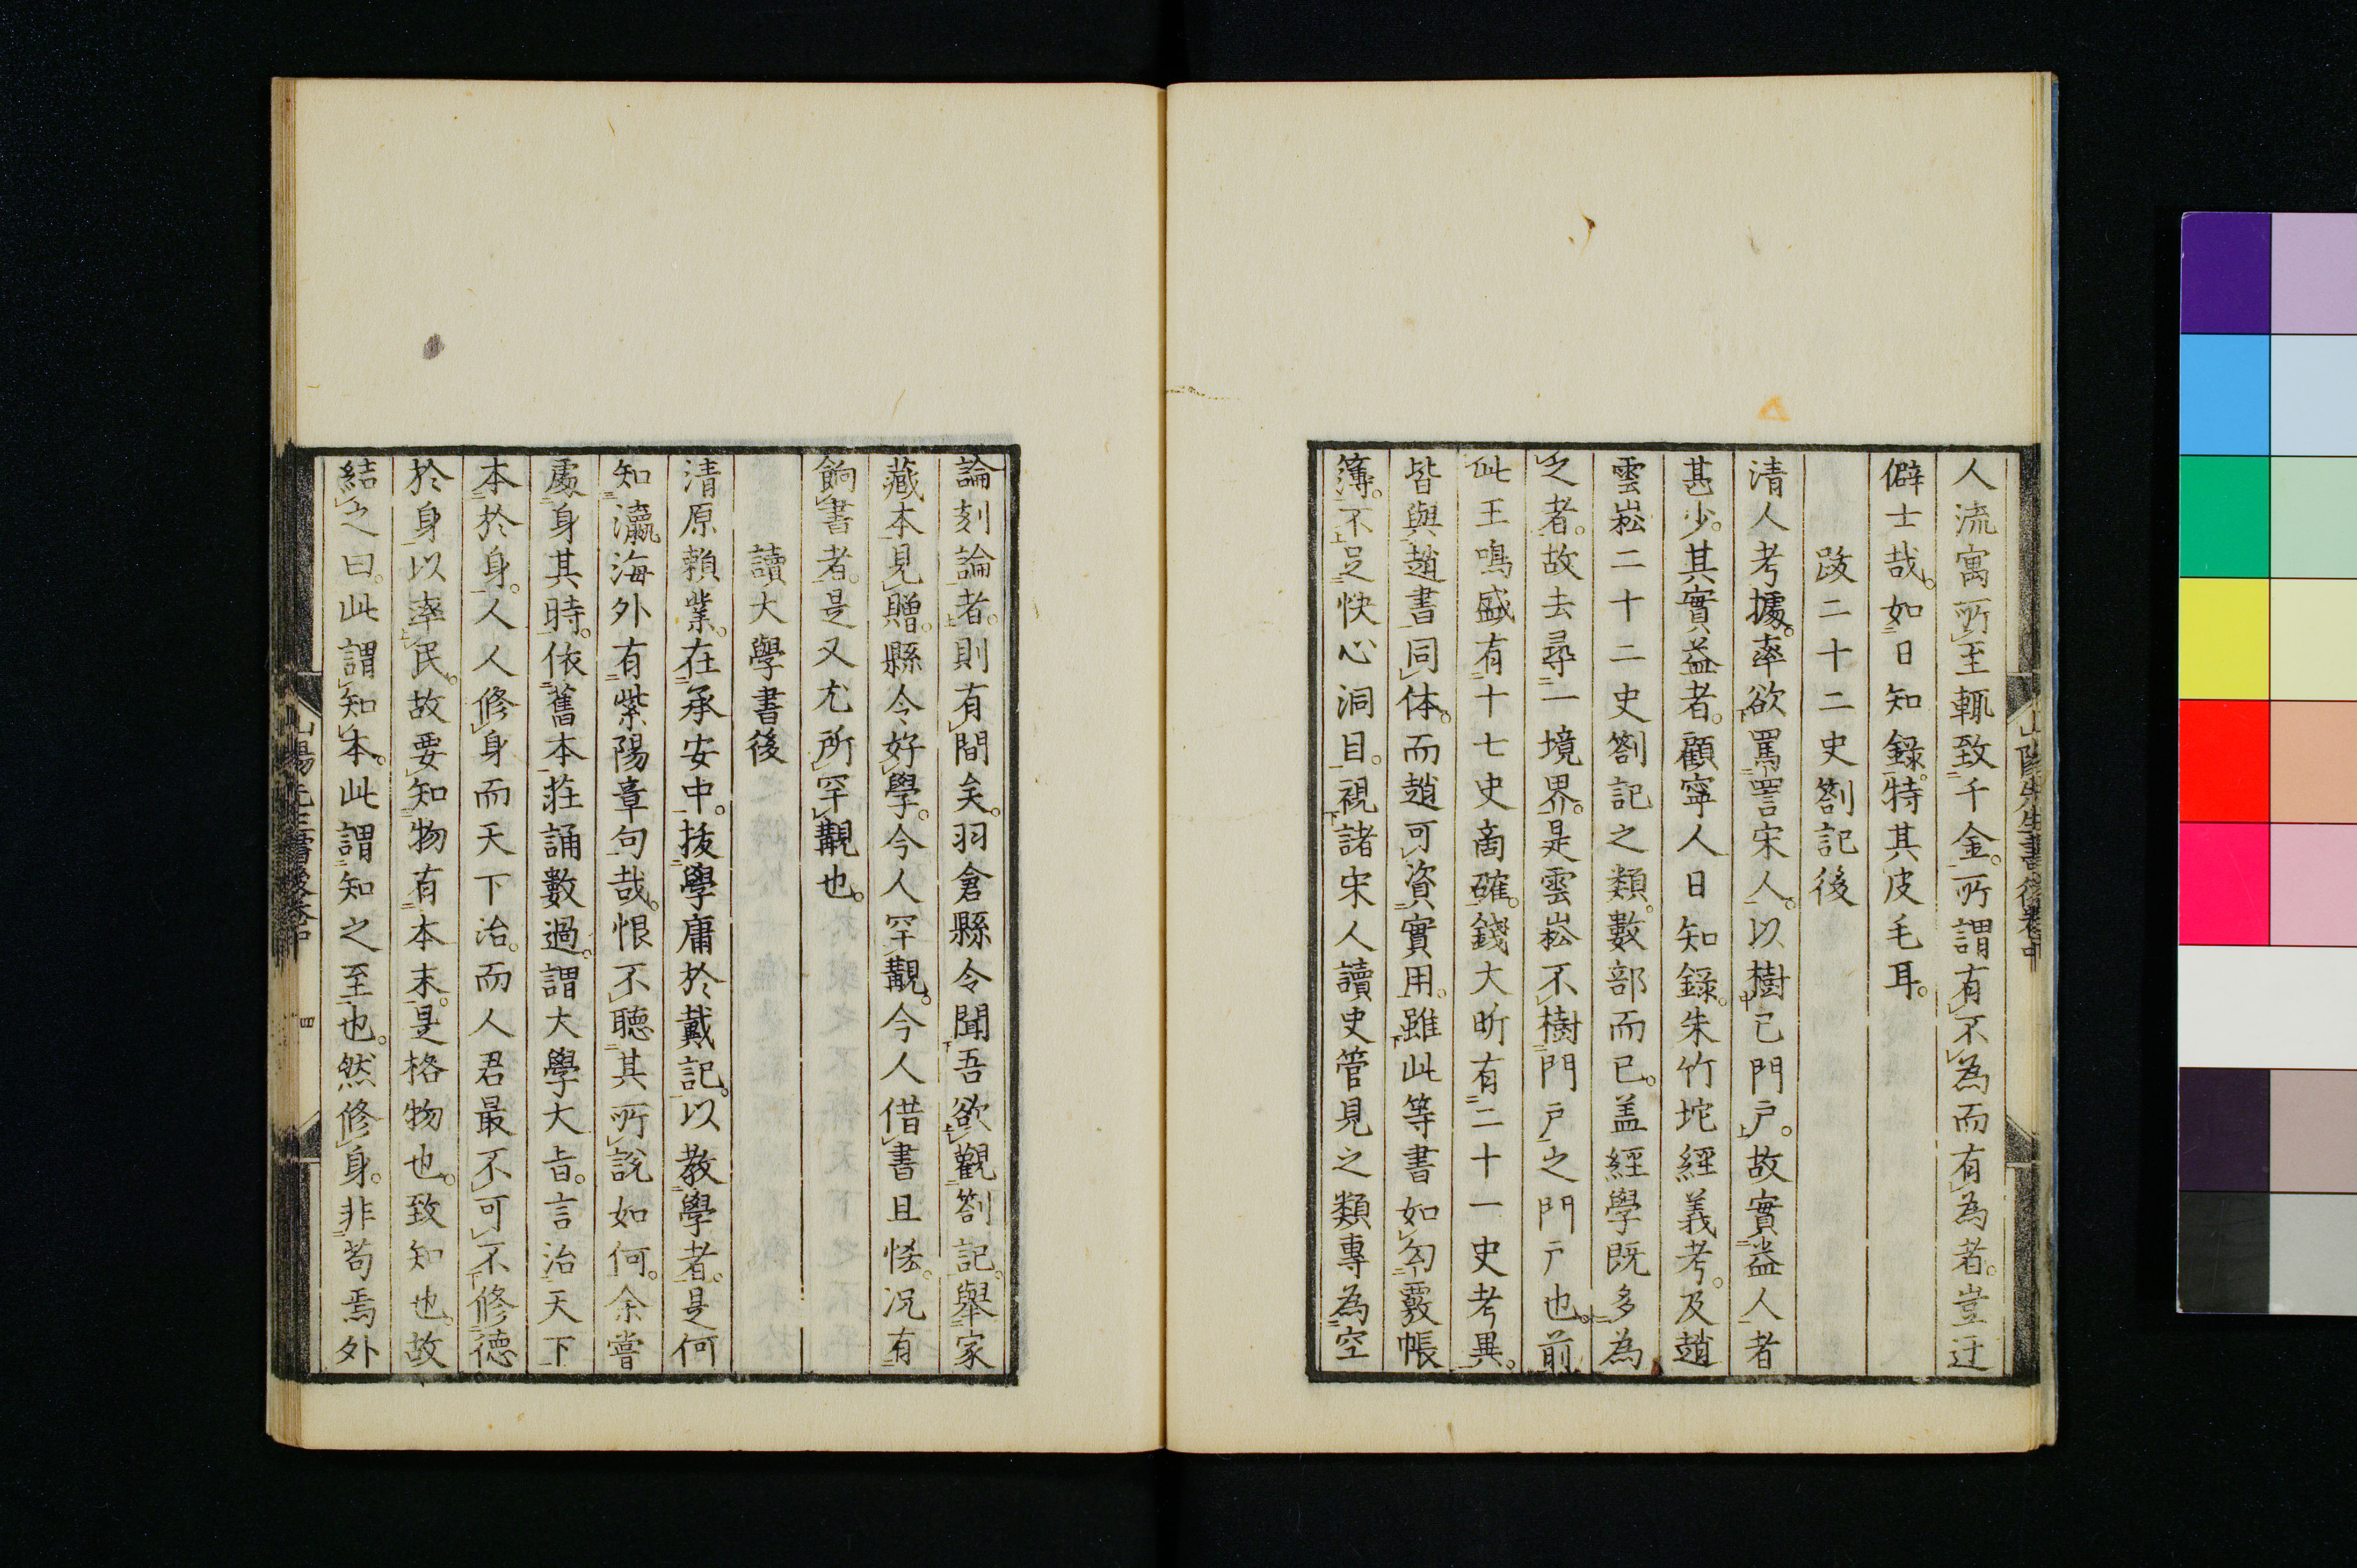 人流寓所至輒致千金。所謂有不為而有為者。豈迂
僻士哉。如日知錄。特其皮毛耳。
跋二十二史劄記後
清人考據。率欲罵詈宋人。以樹己門戶。故實益人者
甚少。其實益者。顧寧人日知錄。朱竹垞經義考。及趙
雲崧二十二史劄記之類。數部而已。盖經學既多為
之者。故去尋一境界。是雲崧不樹門戶之門戶也。前
此王鳴盛有十七史商確。錢大昕有二十一史考異。
皆與趙書同体。而趙可資實用。雖此等書如勾覈帳
簿。不足快心洞目。視諸宋人讀史管見之類專為空
山陽先生書後卷中
論刻論者。則有間矣。羽倉縣令聞吾欲觀劄記。舉家
藏本見贈。縣令好學。今人罕覯。今人借書且悋。况有
餉書者。是又尤所罕覯也。
讀大學書後
清原賴業。在承安中。拔學庸於戴記。以教學者。是何
知瀛海外有紫陽章句哉。恨不聽其所說如何。余嘗
處身其時。依舊本莊誦數過。謂大學大旨。言治天下
本於身。人人修身而天下治。而人君最不可不修德
於身以率民。故要知物有本末。是格物也。致知也。故
結之曰。此謂知本。此謂知之至也。然修身。非苟焉外
山陽先生書後卷中
四